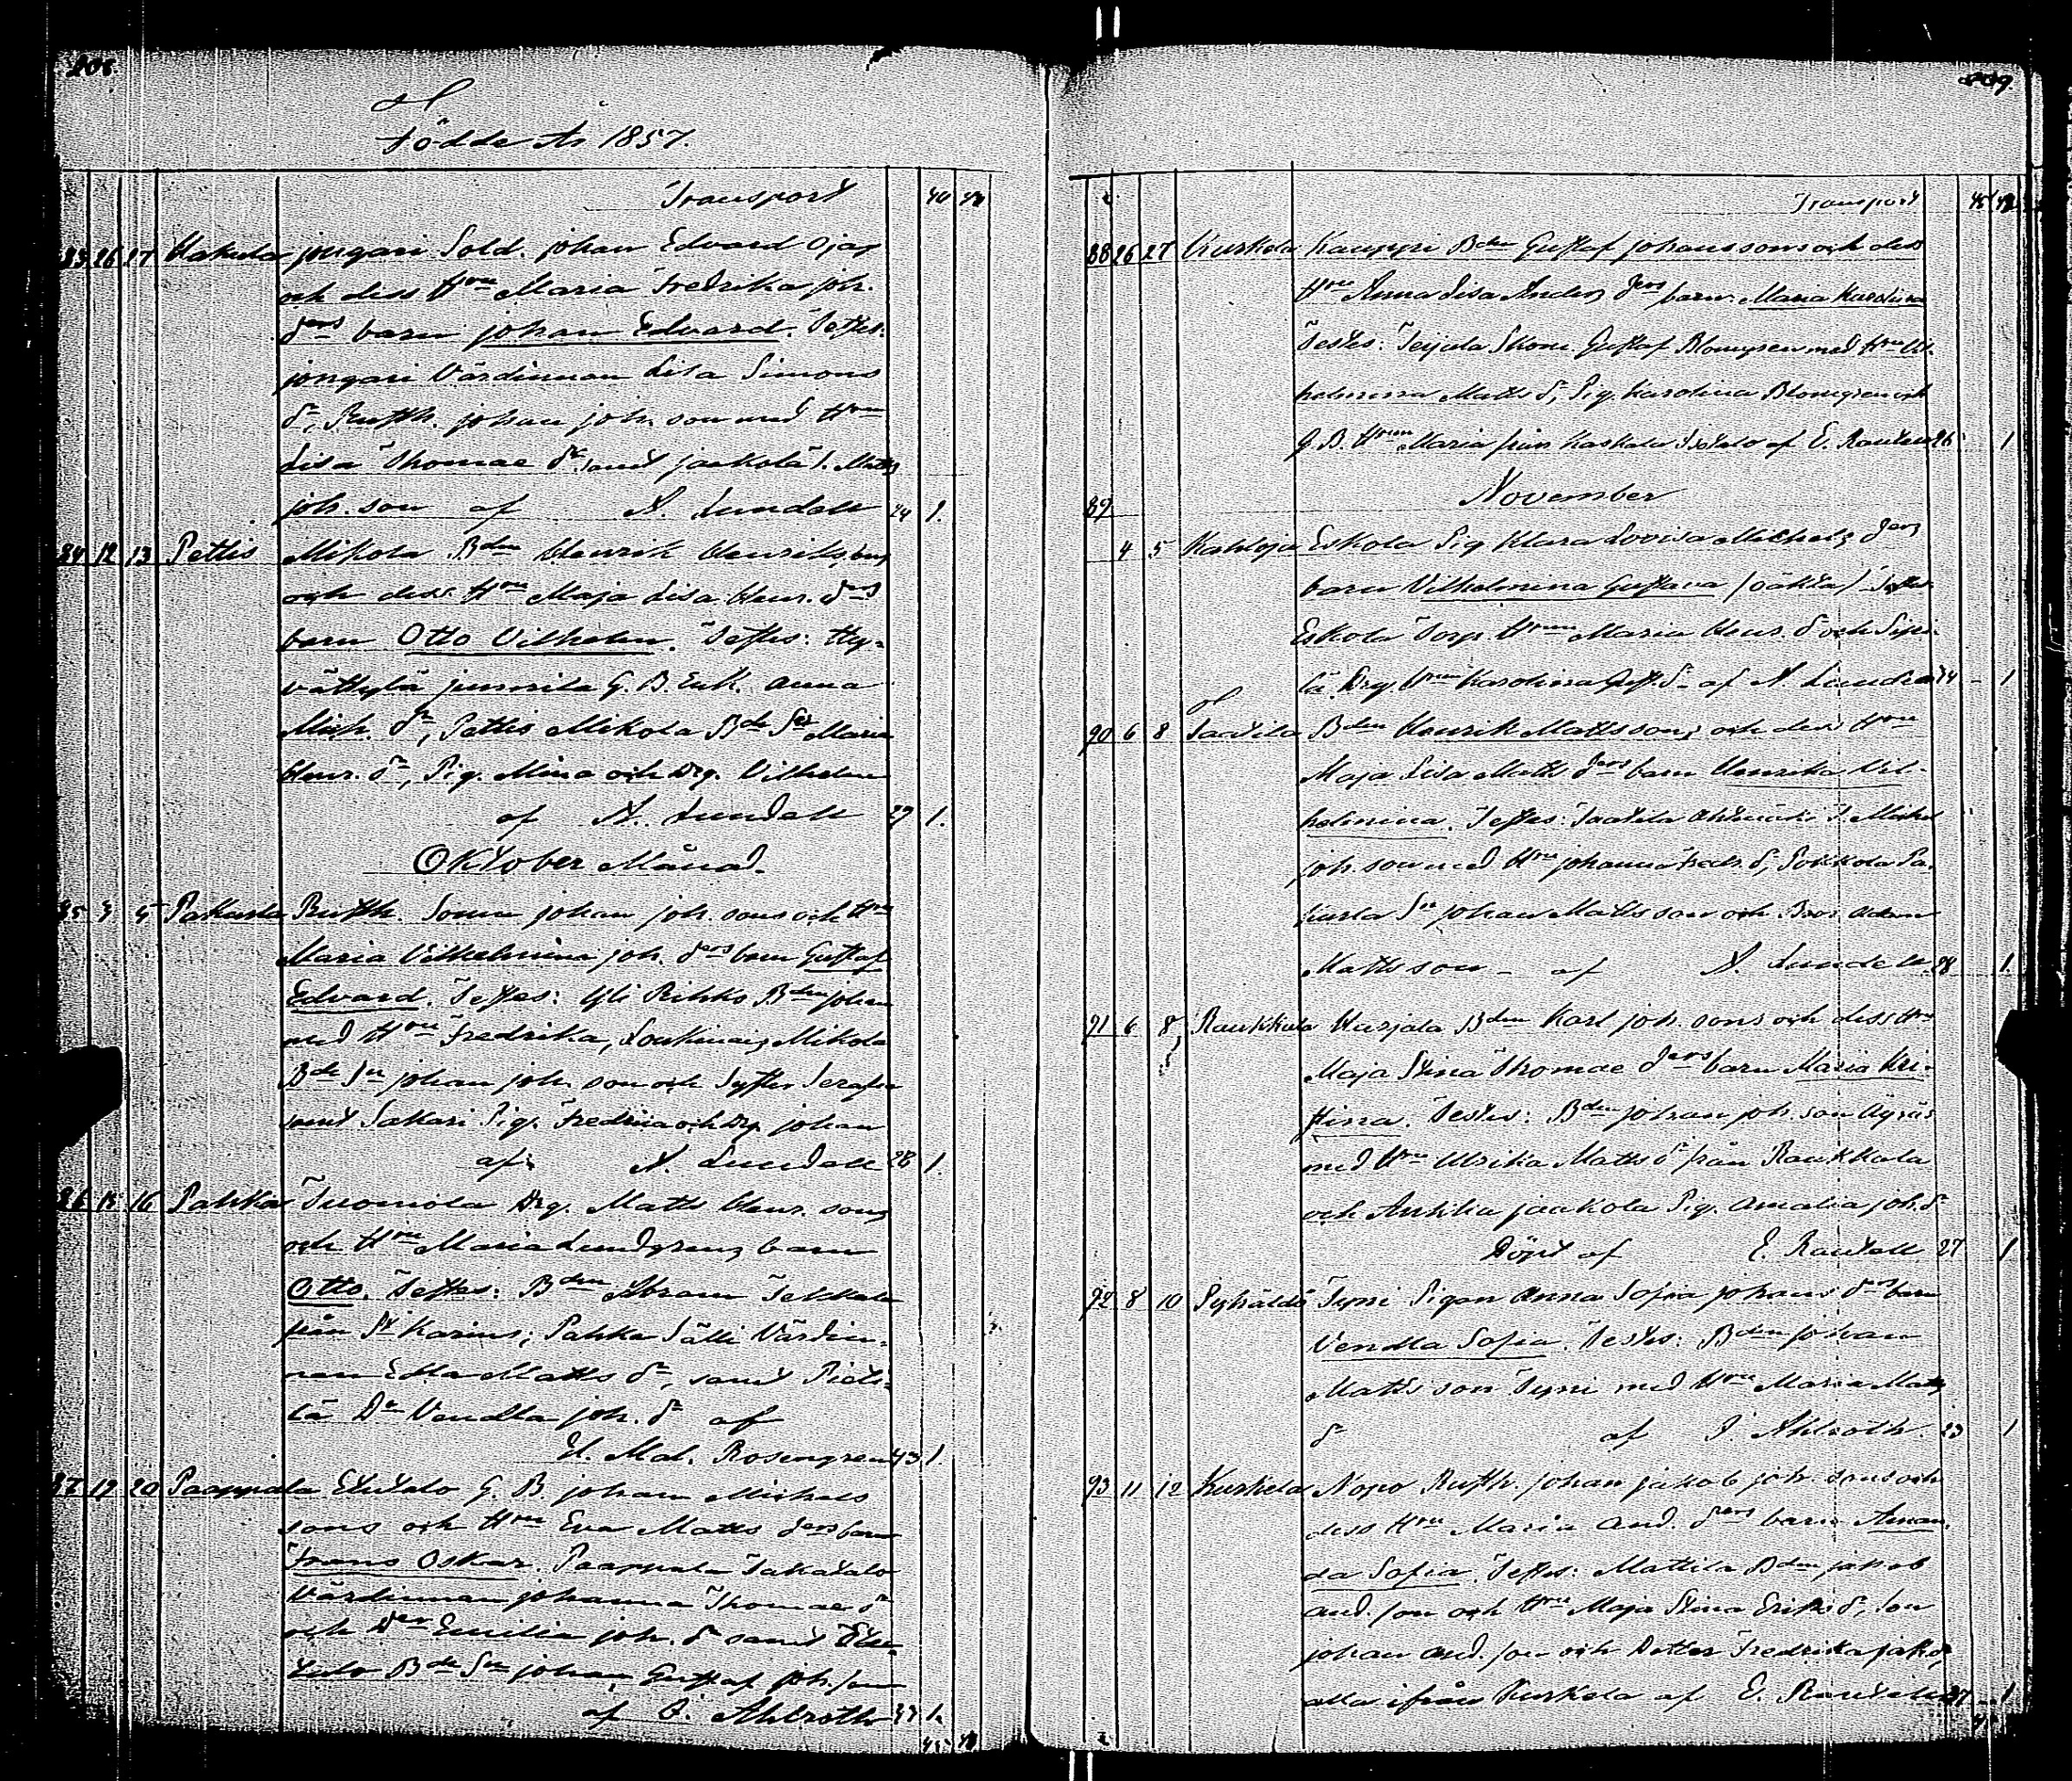 208.
Födde År 1857.
Transport 40 42
83 26 27 Hakula jongari Sold. johan Edvard Ojas
och dess Hru Maria Fredrika joh.
drs barn johan Edvard. Testes:
jongari Värdinnan Lisa Simons
dr, Rusth. johan joh. son med Hru
Lisa Thomae dr samt jaakola T. Matts
joh. son af A. Lundell 24 1.
84 12 13 Pettis Mikola Bdn Henrik Henriks sons
och dess Hru Maja Lisa Henr. drs
barn Otto Vilhelm. Testes: Hy-
vättylä junnila G. B. Enk. Anna
Mich. dr, Pettis Mikola Bde Sr Maria
Henr. dr, Pig. Mina och Drg. Vilhelm
af A. Lundell 1.
Oktober Månad.
85 3 Pakurla Rusth. Sonen johan joh. sons och Hru
Maria Vilhelmina joh. drs barn Gustaf
Edvard. Testes: Yli Rihko Bdn johan
med Hru Fredrika, Mikola
Bde Sn johan joh. son och Syster Serafia
samt Sakari Pig. Fredrica och Drg johan
af A. Lundell 28 1.
86 15 16 Pahka Tuomola Drg. Matts Henr. sons
och Hru Maria Lundgrens barn
Otto. Testes: Bdn Abram Tekkala
från St Karins; Pahka Sälli Värdin-
nan Edla Matts dr, samt Pieti-
lä Dr Vendla joh. dr af
H. Mal. Rosengren 43 1.
87 19 20 Paappala Etutalo G. B. johan Michels
sons och Hru Eva Matts drs barn
Frans Oskar. Paappala Takatalo
Värdinnan johanna Thomae dr
och Dr Emilia joh. dr samt Etu-
talo Bde Sn johan Gustaf joh. son
af I. Ahlroth 1.
45 42
209.
2 Transport 45 42
88 26 27 Kuskela Kauppi Bdn Gustaf johans sons och dess
Hru Anna Lisa Anders drs barn Maria Karolina
Testes: Teijula Skom. Gustaf Blomgren med Hru Vil-
helmina Matts dr, Pig. Karolina Blomgren och
G. B. Hrun Maria från af E. Rautell 26 1
November
89
4 5 Kahloja Eskola Pig Klara Lovisa Michels drs
barn Vilhelmina Gustava /oäkta/ Testes
Eskola Torp. Hrun Maria Henr. dr och Sipi-
lä Drg. Hrun Karolina Gust. dr af A. Lundell 24 - 1
90 6 8 Saatila Bdn Henrik Matts sons och dess Hru
Maja Lisa Matts drs barn Henrika Vil-
helmina. Testes: Saatila T. Michel
joh. son med Hru johanna Fredr. dr, Pa-
kurla Sn johan Matts son och Bror Adam
Matts son - af A. Lundell 28 1.
91 6 8 Raukkula Hurjala Bdn Karl joh. sons och dess Hru
Maja Stina Thomae drs barn Maria Kri-
stina. Testes: Bdn johan joh. son Äyräs
med Hru Ulrika Matts dr från Raukkala
och Anttila jaakola Pig. Amalia joh. dr
Döpt af E. Rautell 27 1
92 8 10 Pyhältö Tyni Pigan Anna Sofia johans drs barn
Vendla Sofia. Testes: Bdn johan
Matts son Tyni med Hru Maria Matts
dr af I. Ahlroth. 23 1
93 11 12 Kuskela Nopo Rusth. johan jakob joh. sons och
dess Hru Maria And. drs barn Aman-
da Sofia. Testes: Mattila Bdn jakob
And. son och Hru Maja Stina Eriks dr, Son
johan And. son och Dotter Fredrika jak. dr
alla ifrån Kuskela af E. Rautell 27 1
2